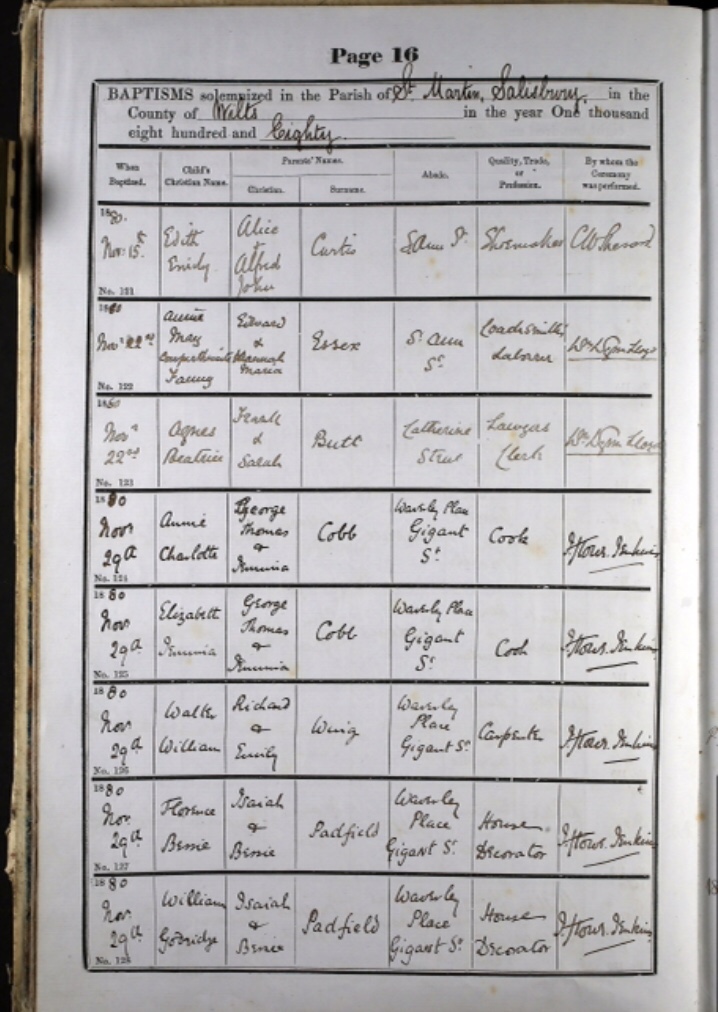 Page 16
BAPTISMS solemnized in the Parish of St. Martin, Salisbury, in the
County of Wilts in the year One thousand
eight hundred and Eighty.
When Baptized. Child's Christian Name. Parents' Names. Abode. Quality, Trade, or Profession. By whom the Ceremony was performed.
Christian. Surname.
1880.
Nov: 15th
Edith
Emily
Alice
+
Alfred
John
Curtis
St Ann St.
Shoemaker
No. 121
1880
Nov 22nd
Annie
May
Fanny
Edward
&
Hannah
Maria
Essex
St Ann
St
Labourer
Wm Wynn Lloyd
No. 122
1880
Novr
22nd
Agnes
Beatrice
Frank
&
Sarah
Butt
Catherine
Street
Lawyers
Clerk
Wm Wynn Lloyd
No. 123
1880
Novr
29th
Annie
Charlotte
George
Thomas
&
Jemima
Cobb
Waverly Place
Gigant
St
Cook
Jenkins
No. 124
1880
Nov
29th
Elizabeth
Jemima
George
Thomas
&
Jemima
Cobb
Waverly Place
Gigant
St
Cook
Jenkins
No. 125
1880
Nov
29th
Walter
William
Richard
&
Emily
Waverley
Place
Gigant St
Carpenter
Jenkins
No. 126
1880
Nov.
29th
Florence
Bessie
Isaiah
&
Bessie
Padfield
Waverley
Place
Gigant St
House
Decorator
Jenkins
No. 127
1880
Nov.
29th
William
Isaiah
&
Bessie
Padfield
Waverley
Place
Gigant St
House
Decorator
Jenkins
No. 128